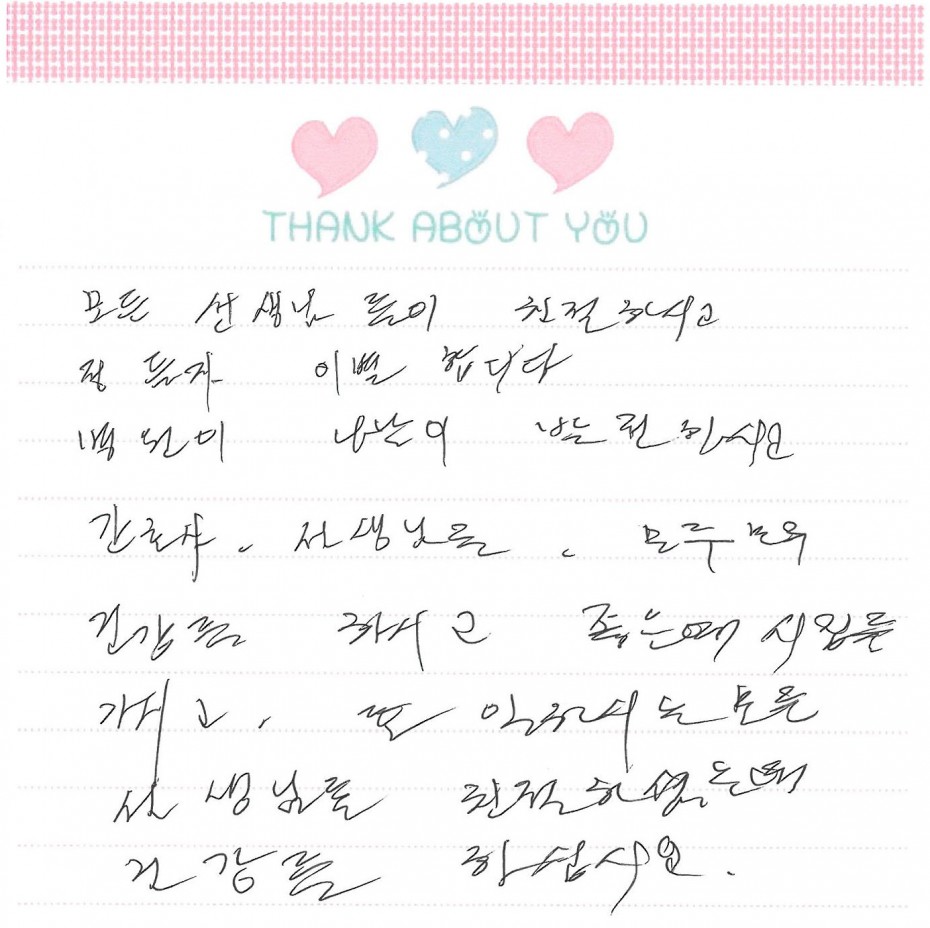 THANK ABOUT YOU
모든 선생님 들이 친절하시고
정 들자 이별 합니다
간호사. 선생님들. 모두모두
건강들 하시고 좋은데 시집들
가시고. 또 일하시는 모든
선생님들 친절하셨는데
건강들 하십시요.